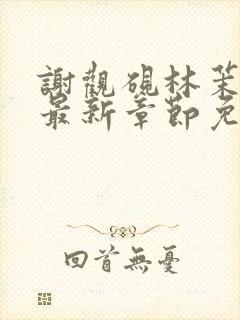 謝觀硯林茉
最新章節免
回首無憂